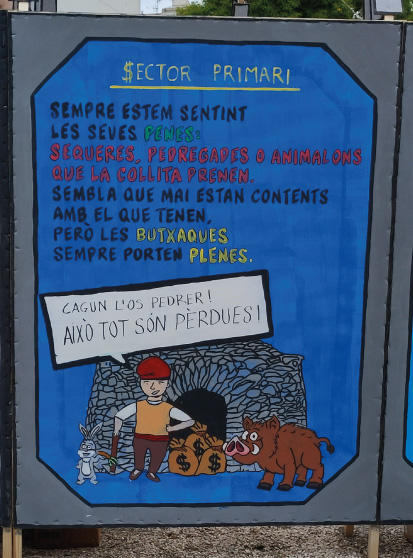 $ECTOR PRIMARI
SEMPRE ESTEM SENTINT
LES SEVES PENES:
SEQUERES, PEDREGADES O ANIMALONS
QUE LA COLLITA PRENEN.
SEMBLA QUE MAI ESTAN CONTENTS
AMB EL QUE TENEN,
PERÒ LES BUTXAQUES
SEMPRE PORTEN PLENES.
CAGUN L'OS PEDRER!
AIXÒ TOT SÓN PÈRDUES!
$ $ $